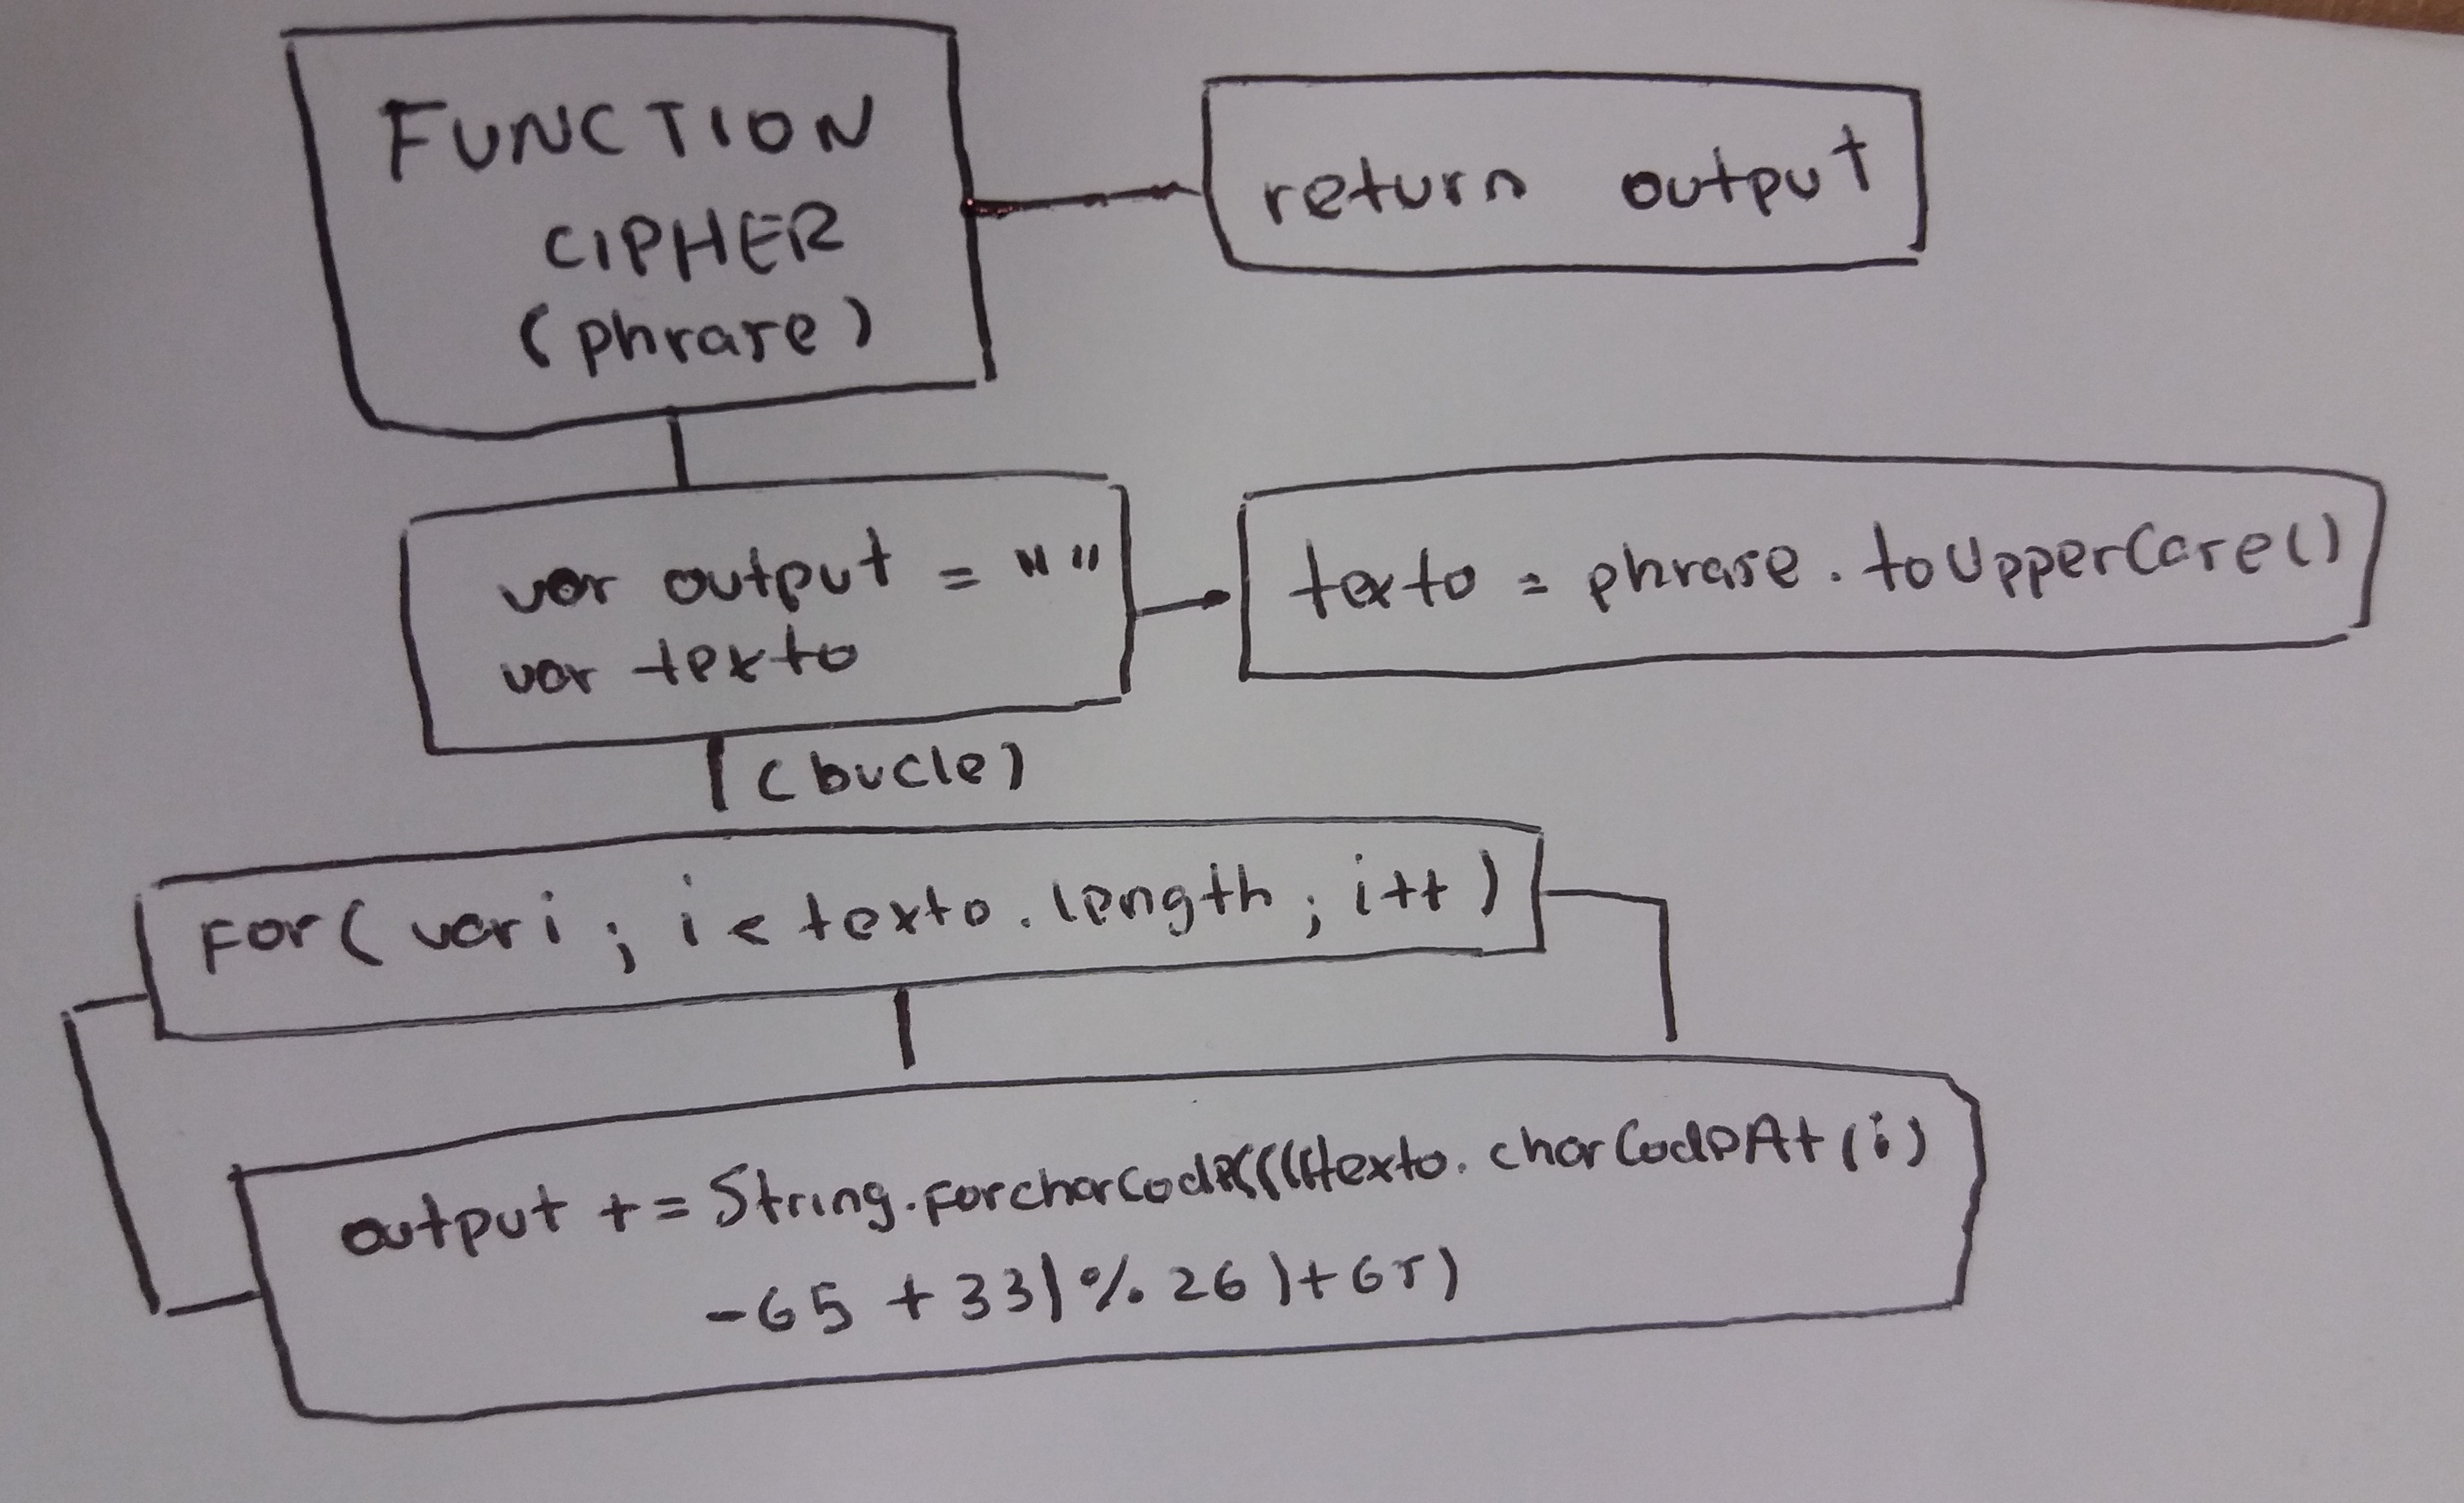 FUNCTION
CIPHER
(phrase)
return output
var output = ""
var texto
texto = phrase.toUpperCase()
(bucle)
For( var i ; i < texto.length ; i++ )
output += String.forcharCode((((texto.charCodeAt(i)
-65 + 33)% 26 )+65)